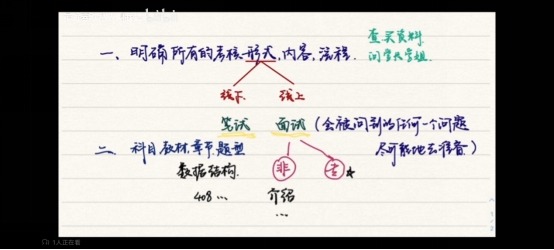 一、明确所有的考核形式,内容,流程.
查买资料
问学长学姐.
线下 线上
笔试 面试 (会被问到的任何一个问题
尽可能地去准备)
二、科目教材,章节,题型
数据结构. 非 专 ★
408 ... 介绍
...
1人正在看